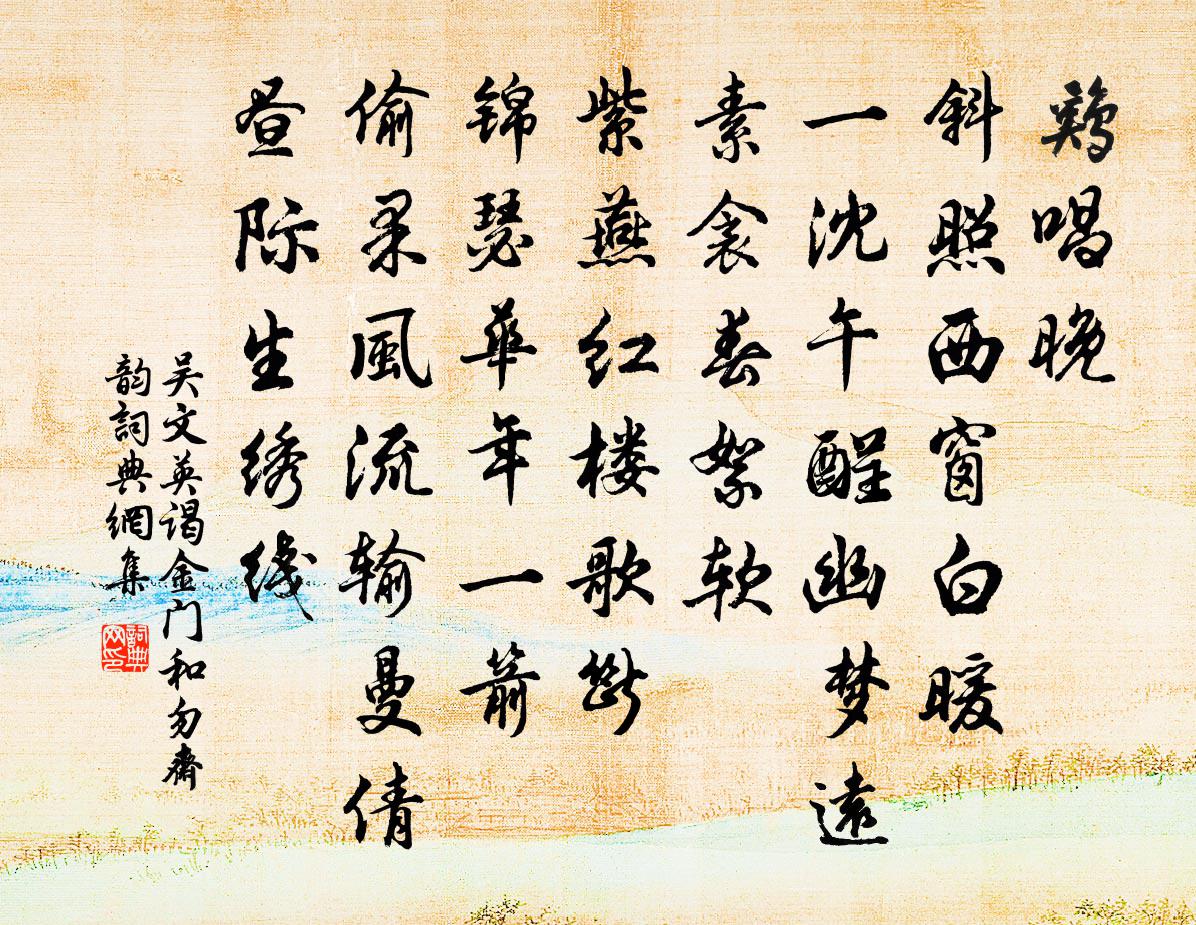 鷄唱晚
斜照西窗白暖
一沈午酲幽梦遠
素衾春絮软
紫燕红楼歌断
锦瑟華年一箭
偷果風流输曼倩
昼际生绣线
吴文英谒金门和勿齋
韵詞典網集
詞典
网印